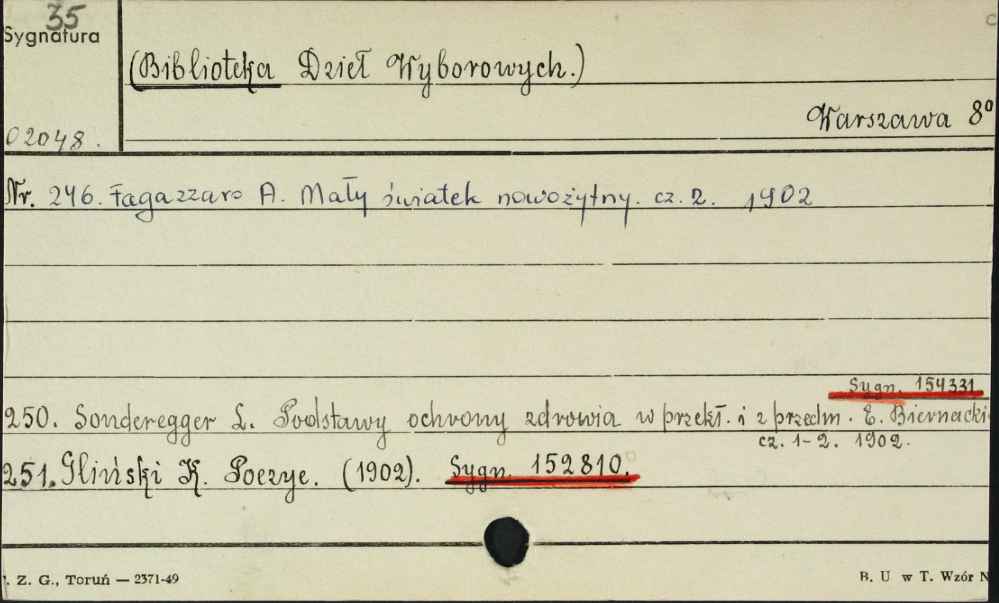 35
Sygnatura
(Biblioteka Dzieł Wyborowych.)
Warszawa 8°
02048.
Nr. 246. Fagazzaro A. Mały światek nowożytny. cz. 2. 1902
Sygn. 154331
250. Sonderegger L. Podstawy ochrony zdrowia w przekł. i z przedm. E. Biernacki
cz. 1-2. 1902.
251. Gliński K. Poezye. (1902). Sygn. 152810.
. Z. G., Toruń — 2371-49
B. U w T. Wzór N